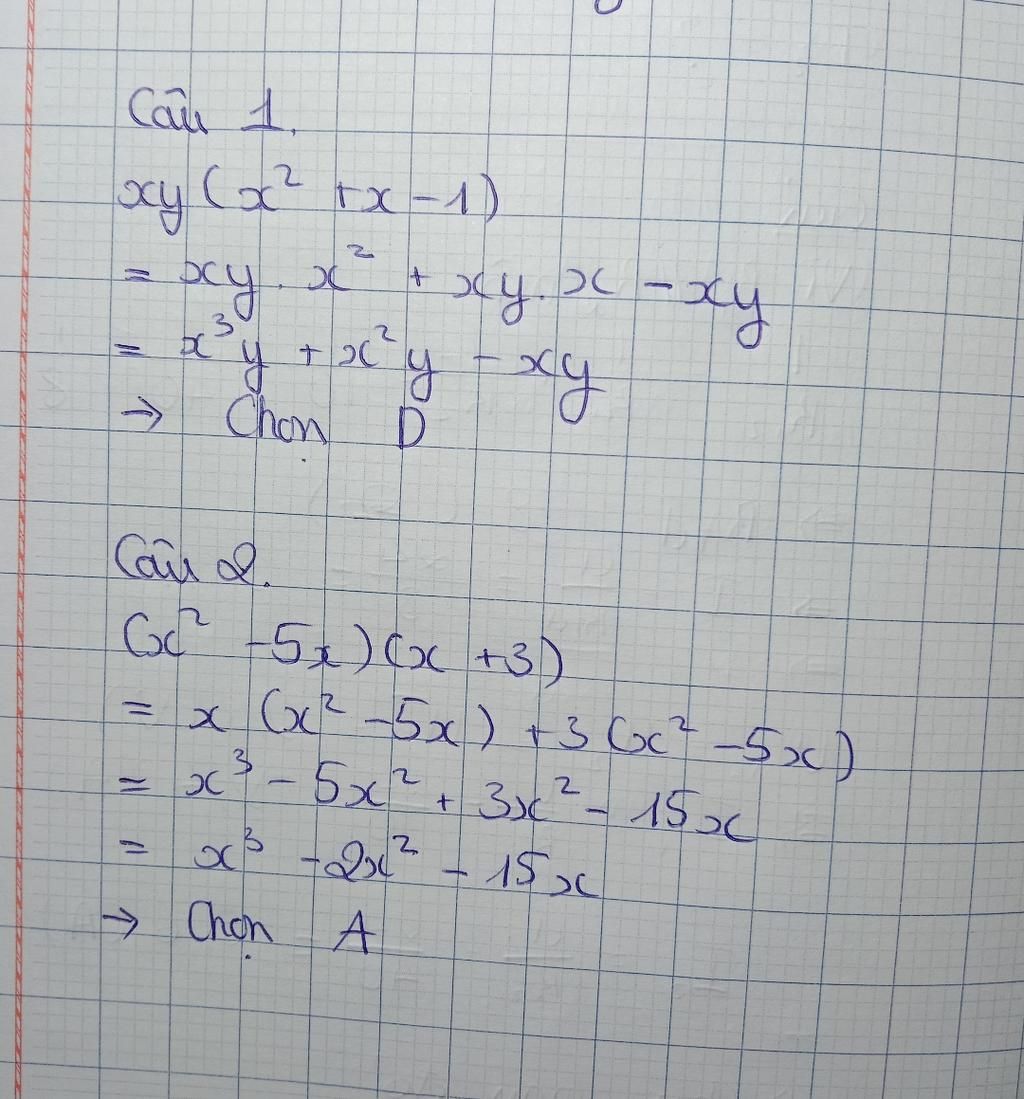 Câu 1.
xy(x² + x - 1)
= xy . x² + xy . x - xy
= x³y + x²y - xy
→ Chọn D
Câu 2.
(x² - 5x)(x + 3)
= x (x² - 5x) + 3(x² - 5x)
= x³ - 5x² + 3x² - 15x
= x³ - 2x² - 15x
→ Chọn A